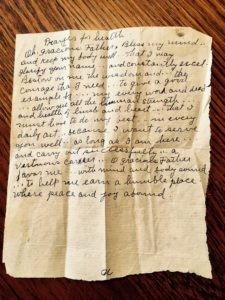 Prayer for health
Oh Gracious Father, Bless my mind..
and keep my body well. That I may
glorify your name.. and constantly excel.
Bestow on me the wisdom and.. the
courage that I need... to give a good
example to.. my every work and deed
.. allow me all the strength..
and health of and.. that I
must have to do my best.. in every
daily art.. because I want to serve
you well.. as long as I am here..
and carry out successfully.. a
career... O gracious Father
favor me.. with mind and body sound
.. to help me earn a humble place
where peace and joy abound